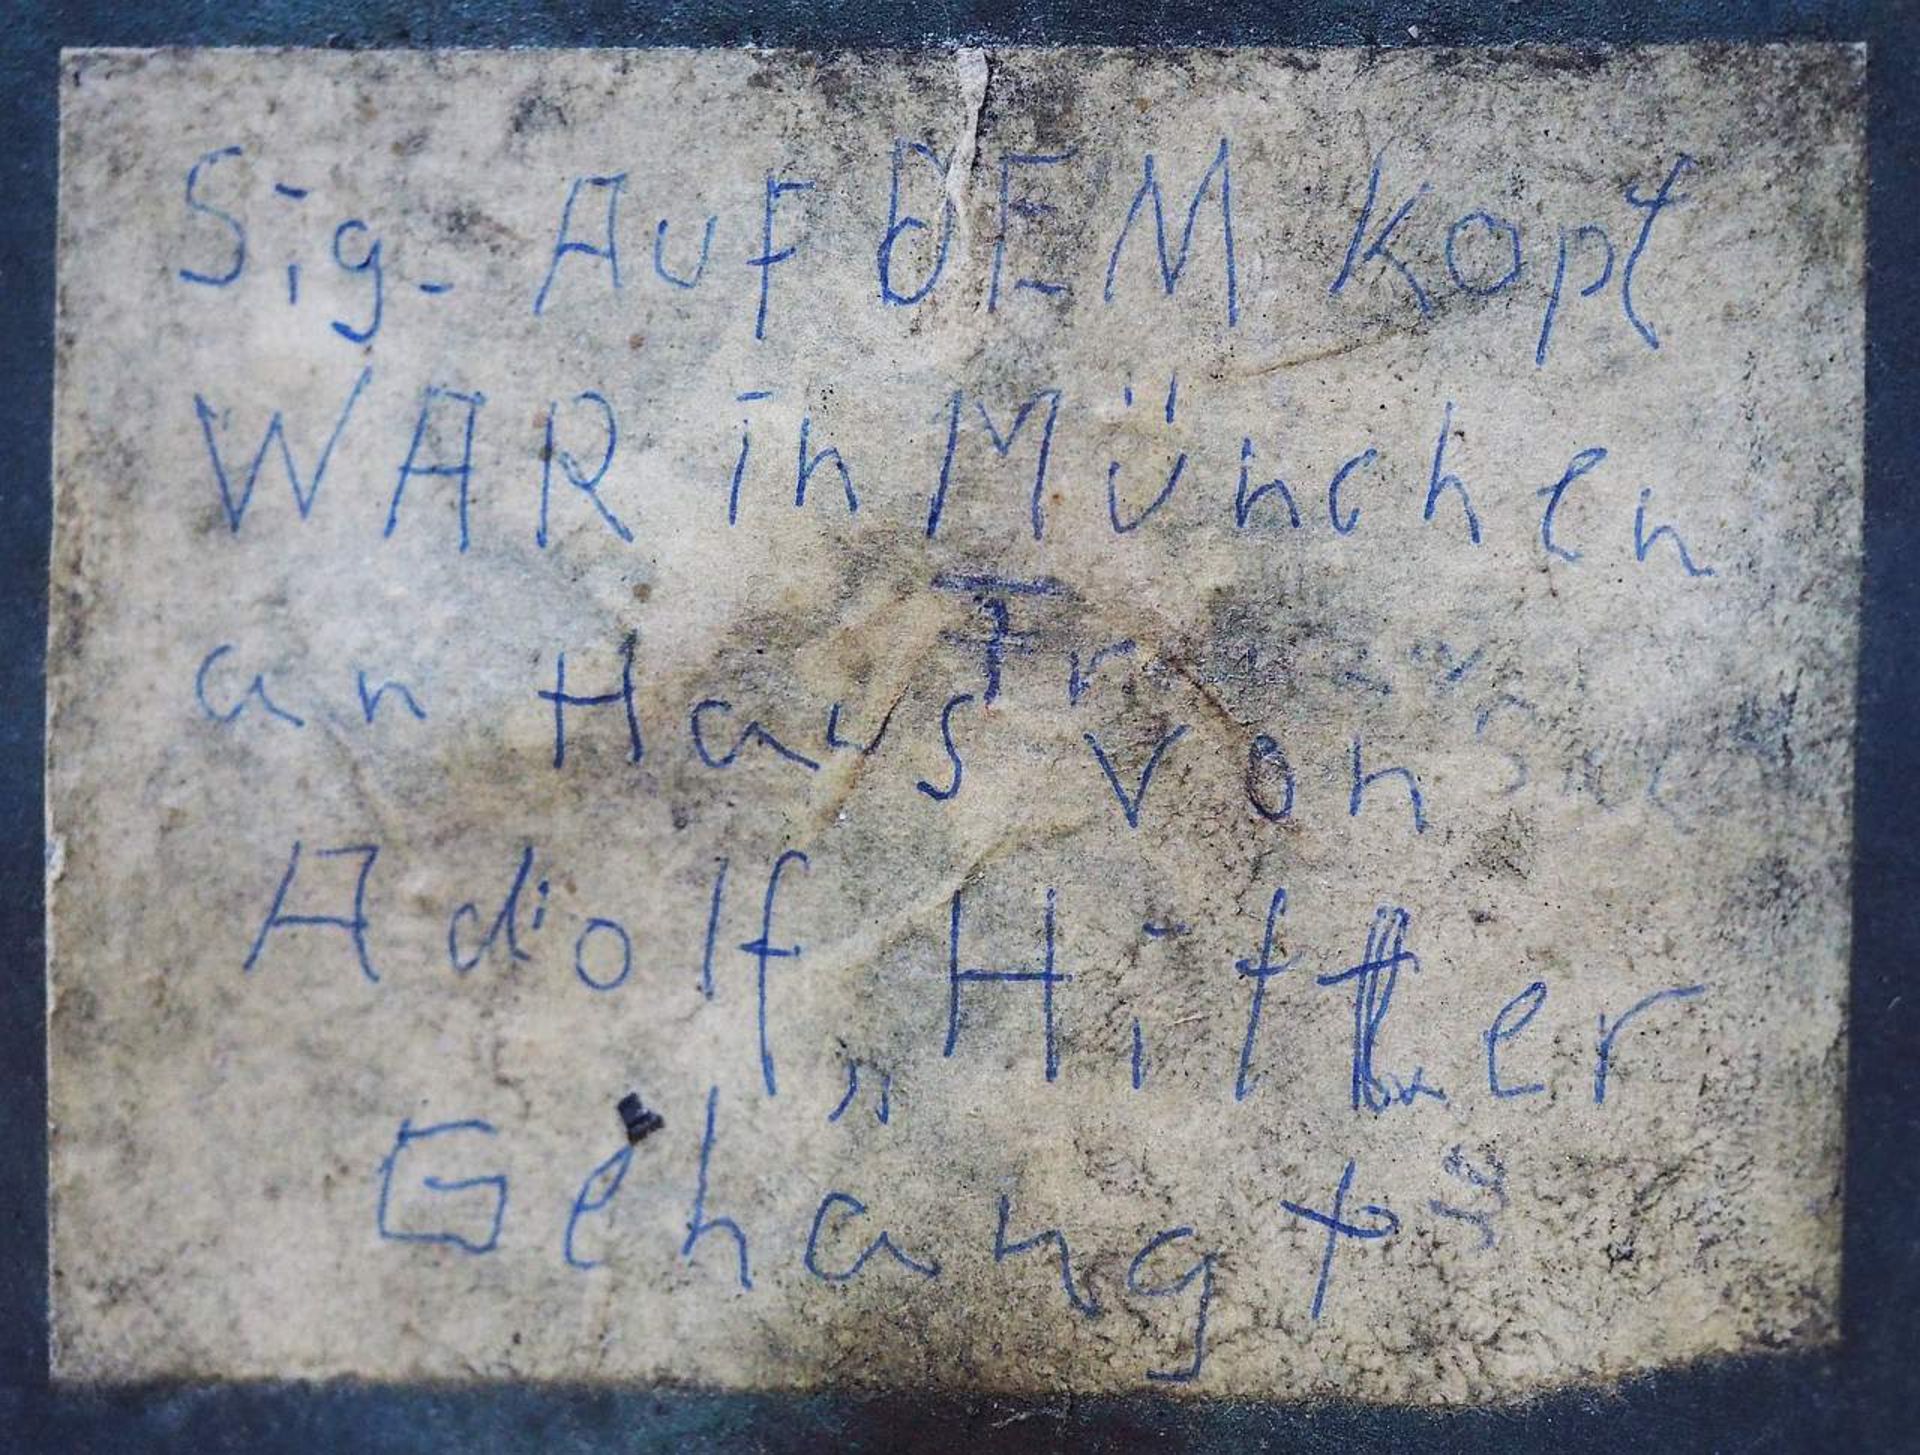 Sig. Auf DEM Kopf
WAR in München
an Haus von
Adolf, Hittler
Gehängt